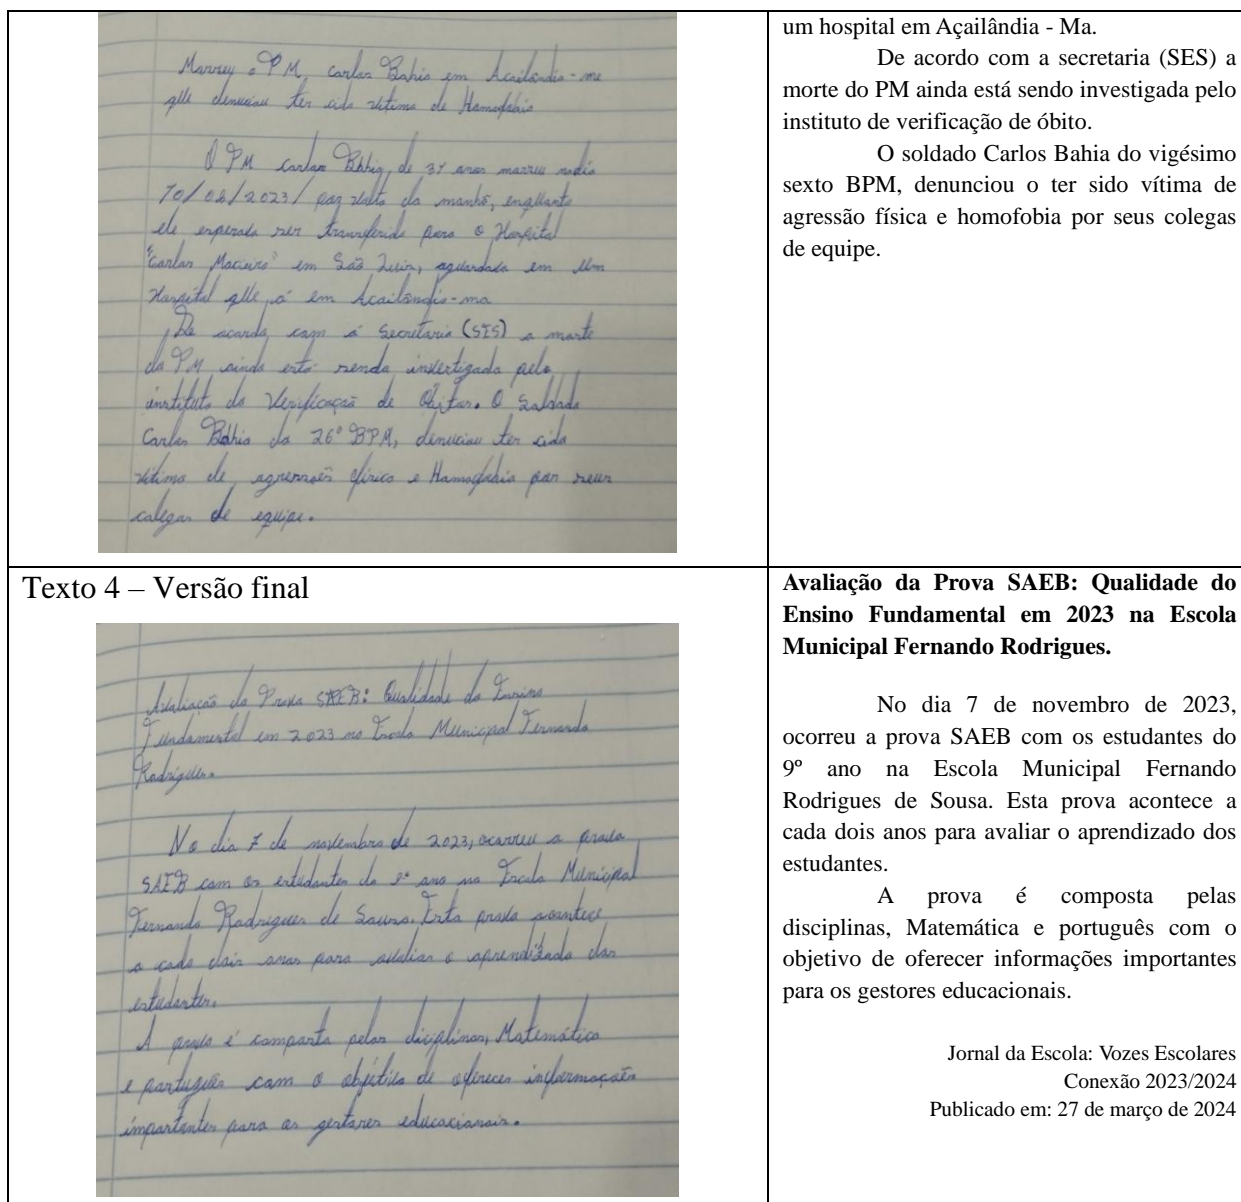 Morreu o PM, carlos Bahia em Acailândia-ma
que denuciou ter cido vitima de Homofobia
O PM carlos Bahia, de 37 anos morreu nodia
10/02/2023/ por volta da manhã, enquanto
ele esperada ser transferido para o Hospital
"Carlos Macieira" em São Luis, aguardada em um
Hospital que, só em Acailandia-ma
De acordo com a Secretaria (SES) a morte
do PM ainda está sendo investigada pelo
instituto de Verificação de Obitos. O Saldado
Carlos Bahia do 26º BPM, denuciou ter cido
vitima de agressões fisica e Homofobia por seus
colegas de equipe.
um hospital em Açailândia - Ma.
De acordo com a secretaria (SES) a
morte do PM ainda está sendo investigada pelo
instituto de verificação de óbito.
O soldado Carlos Bahia do vigésimo
sexto BPM, denunciou o ter sido vítima de
agressão física e homofobia por seus colegas
de equipe.
Texto 4 – Versão final
Avaliação da Prova SAEB: Qualidade do Ensino
Fundamental em 2023 na Escola Municipal Fernando
Rodrigues.
No dia 7 de novembro de 2023, ocorreu a prova
SAEB com os estudantes do 9º ano na Escola Municipal
Fernando Rodrigues de Sousa. Esta prova acontece
a cada dois anos para avaliar o aprendizado dos
estudantes.
A prova é composta pelas diciplinas, Matemática
e português com o objetivo de oferecer informações
importantes para os gestores educacionais.
Avaliação da Prova SAEB: Qualidade do
Ensino Fundamental em 2023 na Escola
Municipal Fernando Rodrigues.
No dia 7 de novembro de 2023,
ocorreu a prova SAEB com os estudantes do
9º ano na Escola Municipal Fernando
Rodrigues de Sousa. Esta prova acontece a
cada dois anos para avaliar o aprendizado dos
estudantes.
A prova é composta pelas
disciplinas, Matemática e português com o
objetivo de oferecer informações importantes
para os gestores educacionais.
Jornal da Escola: Vozes Escolares
Conexão 2023/2024
Publicado em: 27 de março de 2024